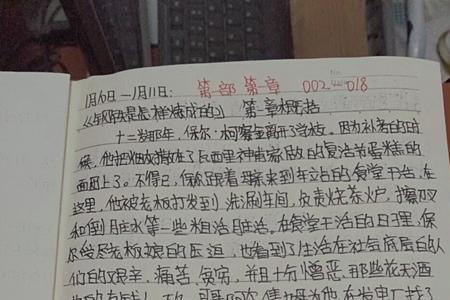 1月10日-1月11日: 第一部 第一章 002-018
《钢铁是怎样炼成的》 第一章概括
十二岁那年,保尔·柯察金离开了学校。因为补考的时
候,他把烟末撒在了瓦西里神甫家做的复活节蛋糕的
面团上了。不得已,保尔跟着母亲来到车站的食堂干活,在
这里,他被老板打发到洗涮车间,负责烧茶炉,擦刀叉
和倒脏水等一些粗活脏活。在食堂干活的日子里,保
尔受尽老板娘的压迫,也看到了生活在社会底层的人
们的艰辛、痛苦、贫穷,并且十分憎恶那些花天酒